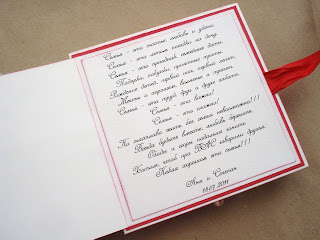 Семья - это счастье, любовь и удача,
Семья - это летом поездки на дачу.
Семья - это праздник, семейные даты,
Подарки, покупки, приятные траты.
Рождение детей, первый шаг, первый лепет,
Мечты о хорошем, волнение и трепет.
Семья - это труд, друг о друге забота,
Семья - это важно!
Семья - это сложно!
Но счастливо жить без семьи невозможно!!!
Всегда будьте вместе, любовь берегите,
Обиды и ссоры подальше гоните,
Хотим, чтоб про ВАС говорили друзья:
Какая хорошая эта семья!!!